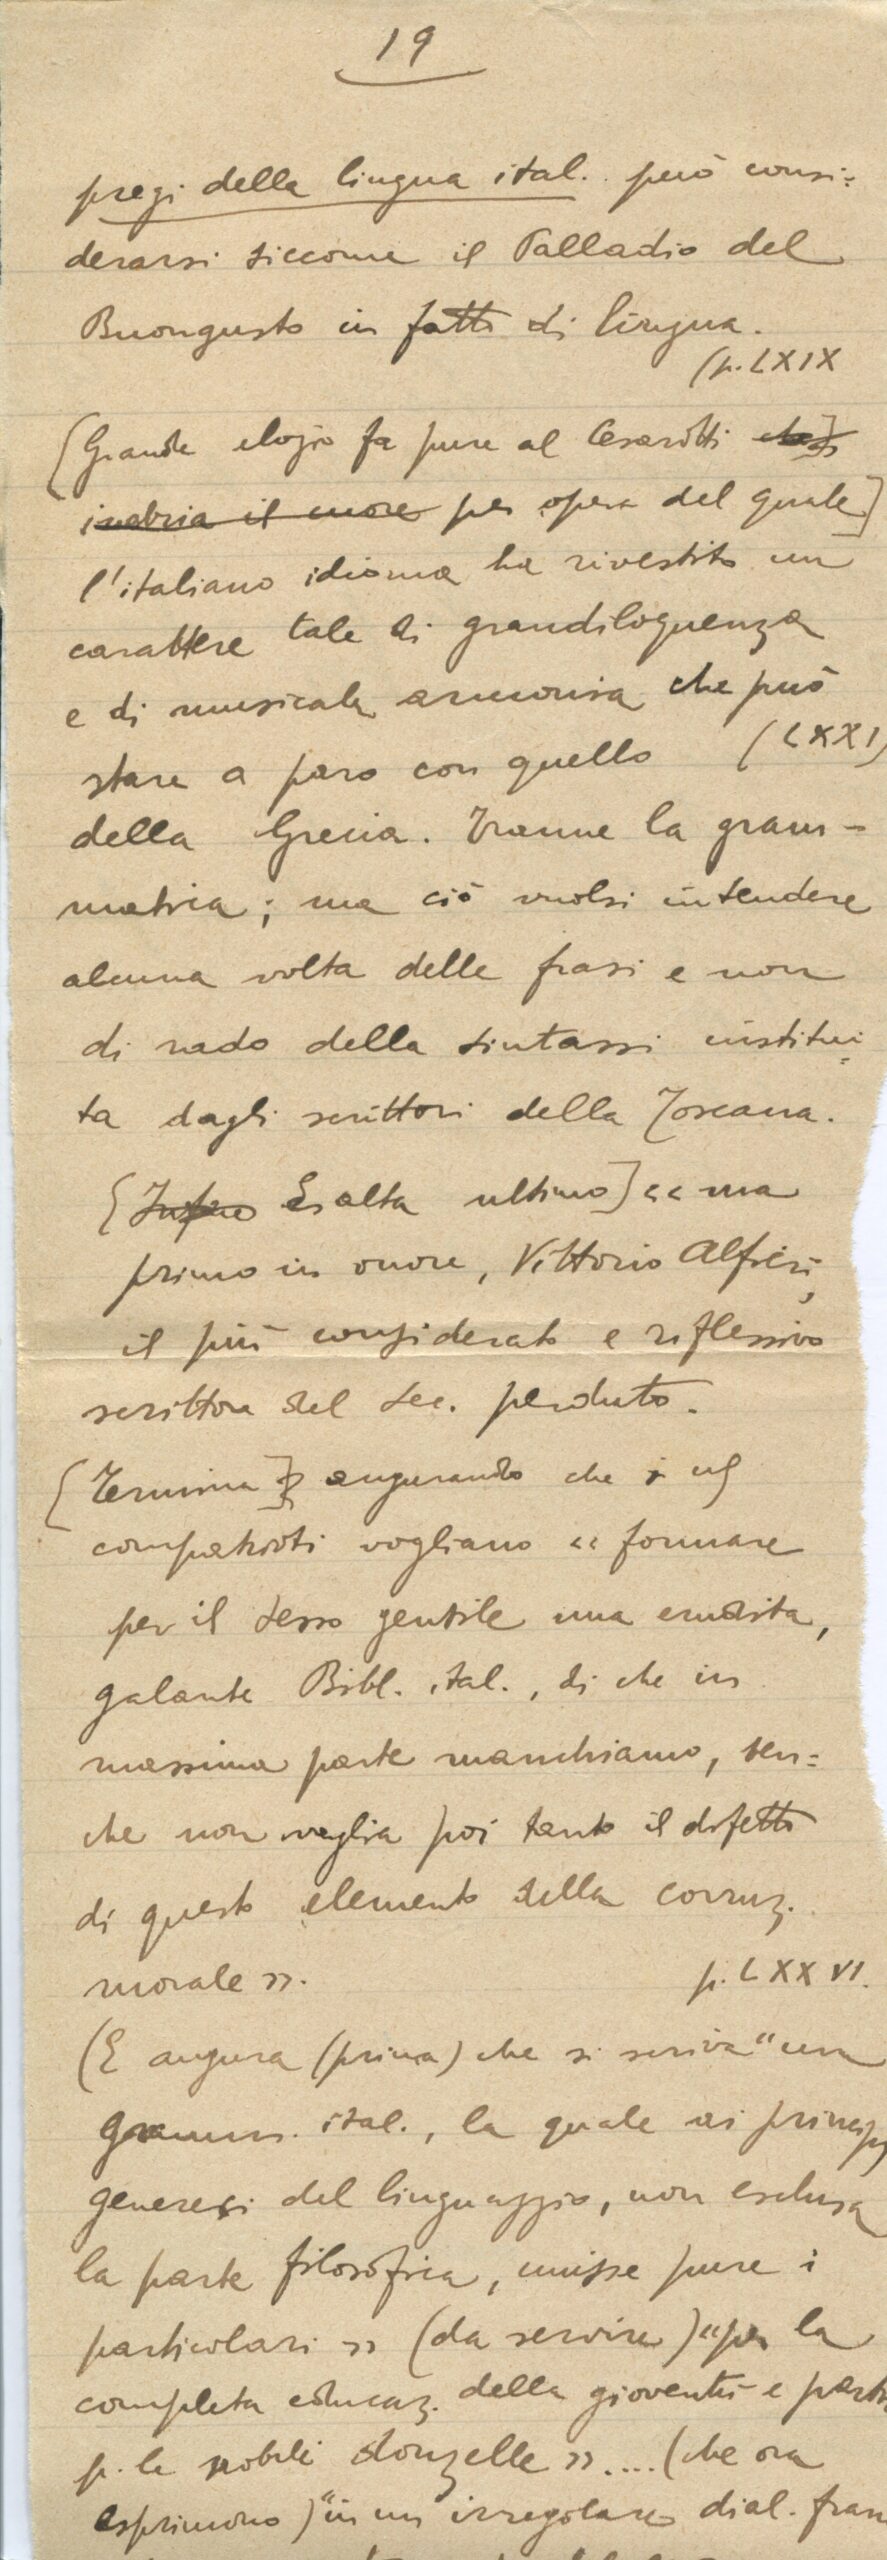 19
pregi della lingua ital. può consi=
derarsi siccome il Palladio del
Buongusto in fatto di lingua.
(p. LXIX
[Grande elogio fa pure al Cesarotti che]
inebria il cuore per opera del quale]
l'italiano idioma ha rivestito un
carattere tale di grandiloquenza
e di musicale armonia che può
stare a paro con quello (LXXI)
della Grecia. Tranne la gram-
matica; ma ciò vuolsi intendere
alcuna volta delle frasi e non
di rado della sintassi institui=
ta dagli scrittori della Toscana.
[Infine Esalta ultimo] « ma
primo in onore, Vittorio Alfieri,
il più considerato e riflessivo
scrittore del sec. perduto.
[Termina] augurando che i
compatrioti vogliano « formare
per il sesso gentile una erudita,
galante Bibl. ital., di che in
massima parte manchiamo, ben=
che non vaglia poi tanto il difetto
di questo elemento della corruz.
morale ». p. LXXVI.
(E augura (prima) che si scriva "una
gramm. ital., la quale ai principj
generali del linguaggio, non esclusa
la parte filosofica, unisse pure i
particolari » (da servire) "per la
completa educaz. della gioventù e partic
p. le nobili donzelle » .... (che ora
esprimono) "in un irregolare dial. fran